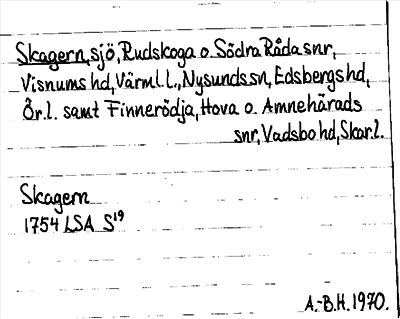 Skagern, sjö, Rudskoga o. Södra Råda snr,
Visnums hd, Värml. l., Nysunds sn, Edsbergs hd,
Ör. l. samt Finnerödja, Hova o. Amnehärads
snr, Vadsbo hd, Skar. l.
Skagern
1754 LSA S19
A.-B.H. 1970.